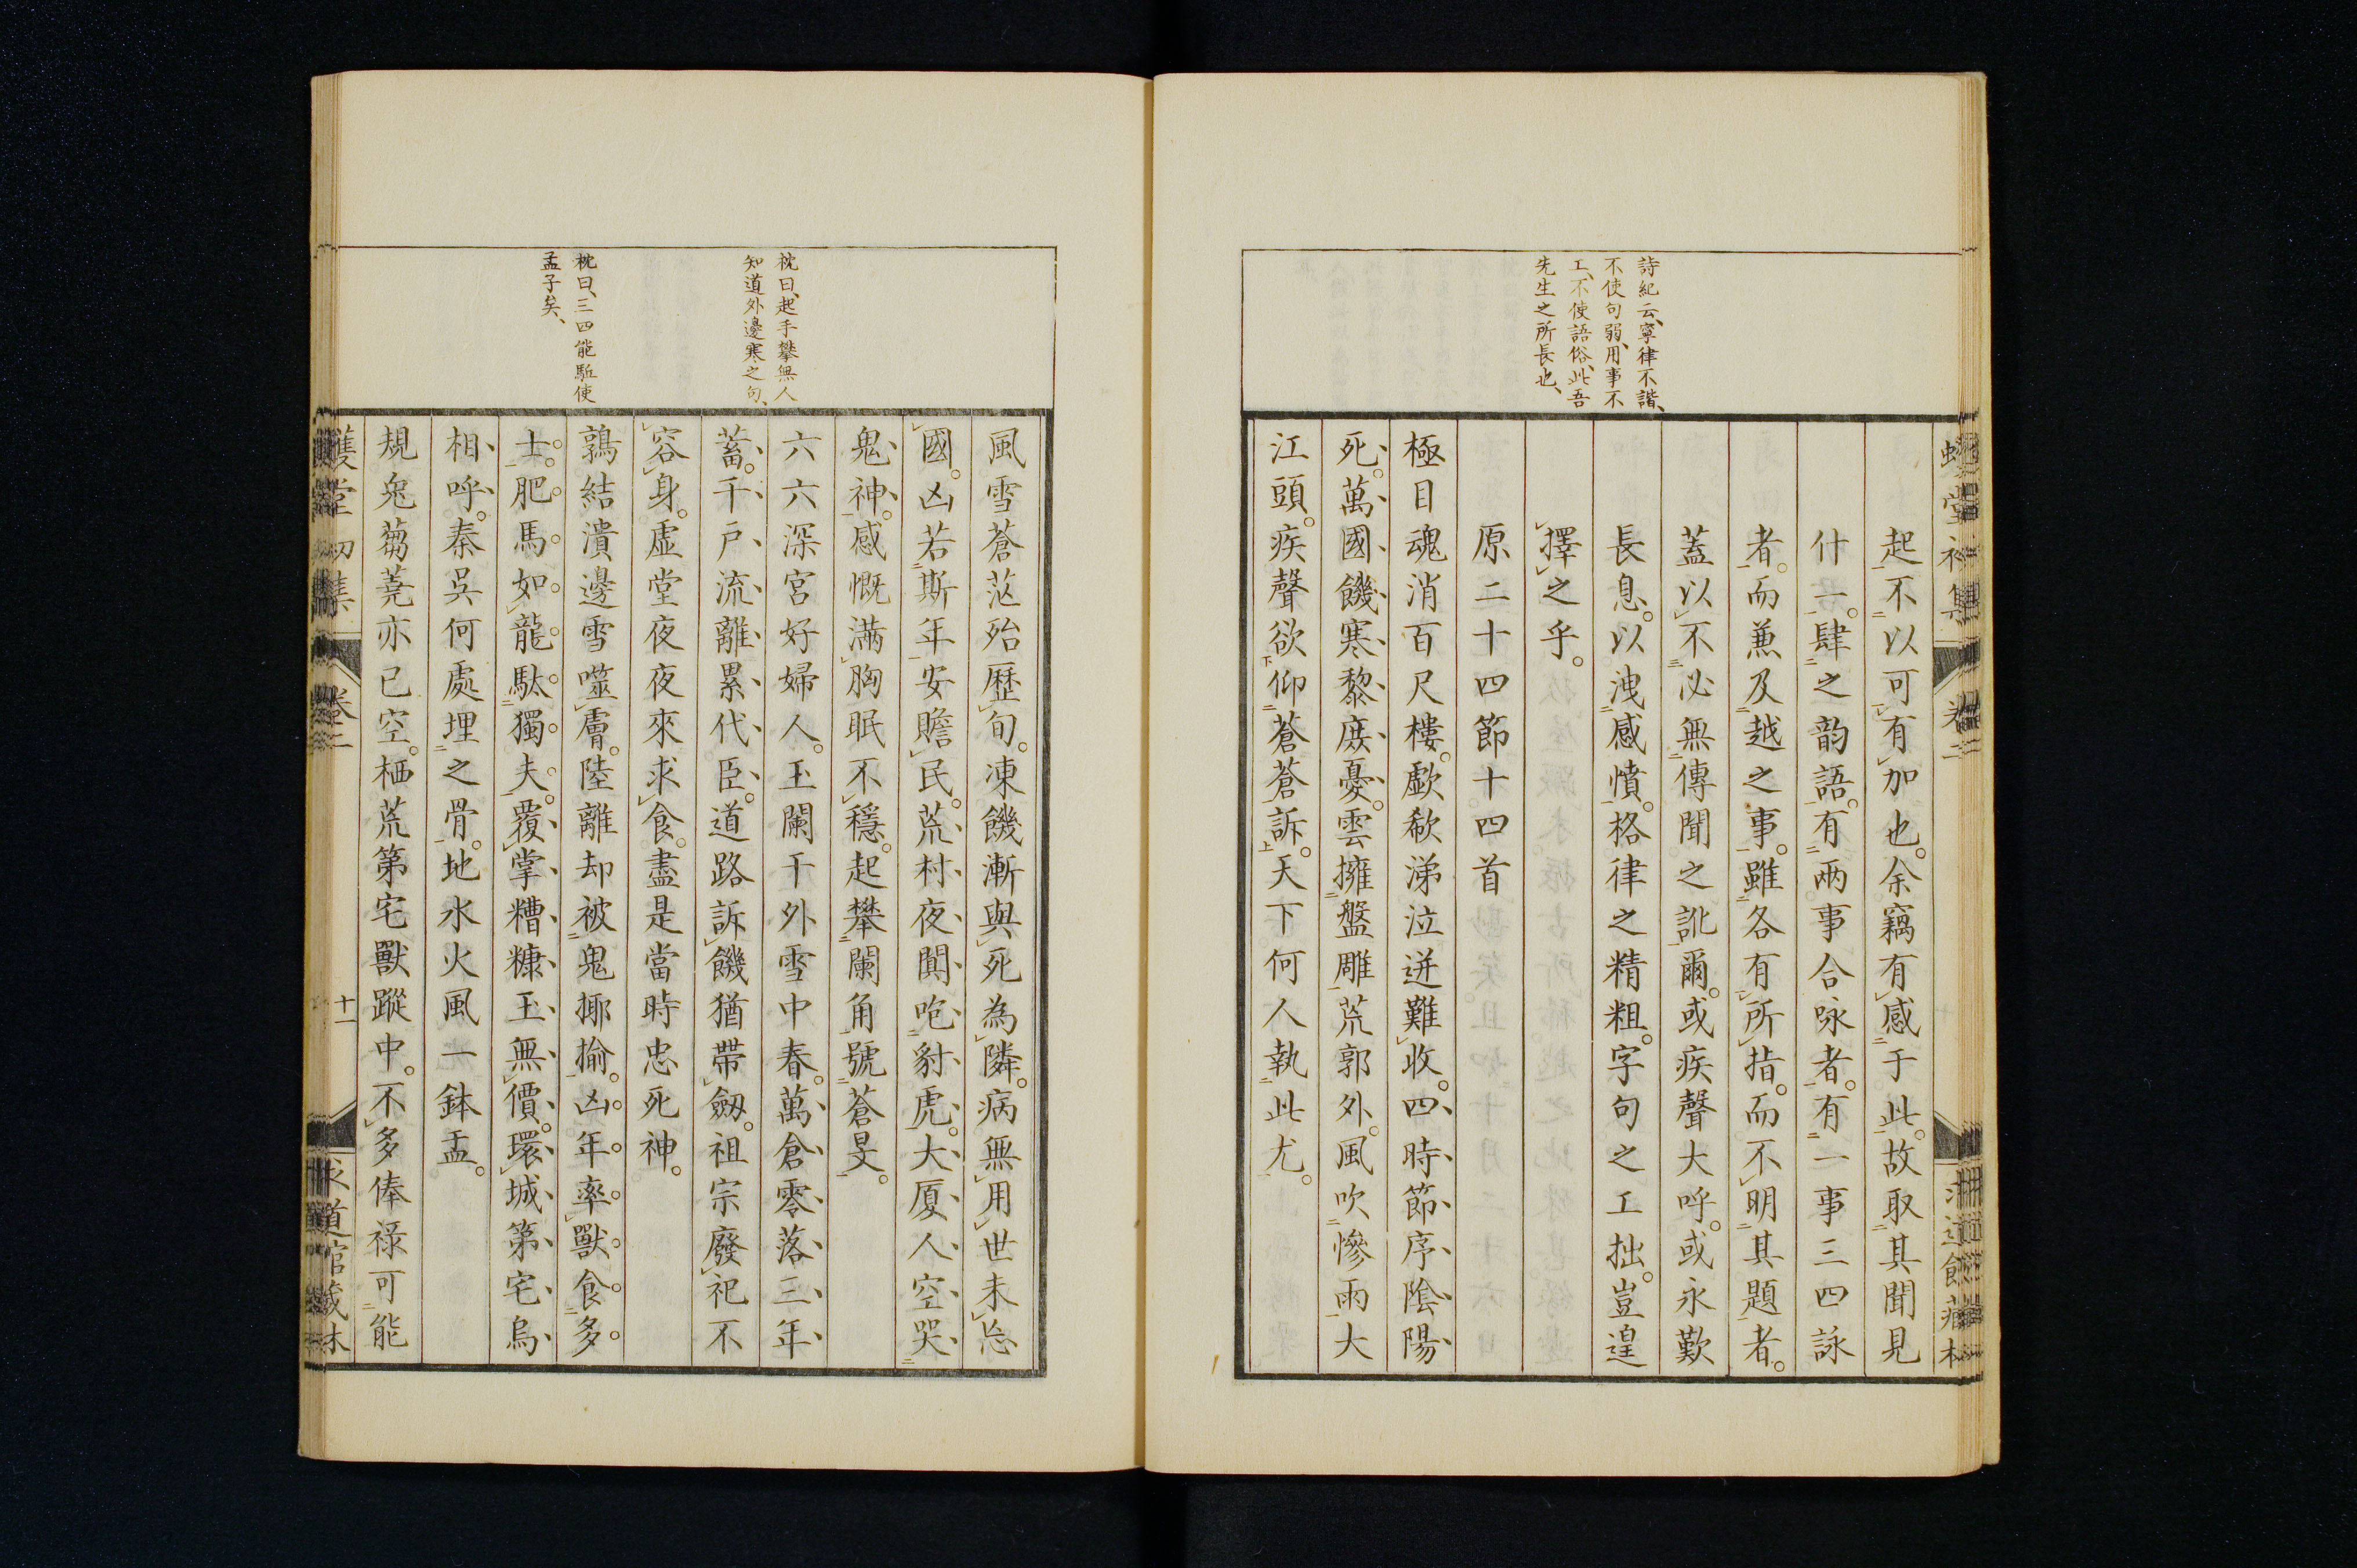 詩紀云、寧律不諧、
不使句弱、用事不
工、不使語俗、此吾
先生之所長也、
起不以可有加也。余竊有感于此。故取其聞見
什一。肆之韵語。有兩事合咏者。有一事三四詠
者。而兼及越之事。雖各有所指。而不明其題者。
蓋以不必無傳聞之訛爾。或疾聲大呼。或永歎
長息。以洩感憤。格律之精粗。字句之工拙。豈遑
擇之乎。
原二十四節十四首
極目魂消百尺樓。歔欷涕泣迸難收。四時節序陰陽
死。萬國饑寒黎庶憂。雲擁盤雕荒郭外。風吹慘雨大
江頭。疾聲欲仰蒼蒼訴。天下何人執此尤。
枕曰、起手攀無人
知道外邊寒之句、
枕曰、三四能駈使
孟子矣、
風雪蒼茫殆歷旬。凍饑漸與死為隣。病無用世未忘
國。凶若斯年安贍民。荒村夜闃咆豺虎。大厦人空哭
鬼神。感慨滿胸眠不穩。起攀闌角號蒼旻。
六六深宮好婦人。玉闌干外雪中春。萬倉零落三年
蓄。千戶流離累代臣。道路訴饑猶帶劒。祖宗廢祀不
容身。虛堂夜夜來求食。盡是當時忠死神。
鶉結潰邊雪噬膚。陸離却被鬼揶揄。凶年率獸食多
士。肥馬如龍駄獨夫。覆掌糟糠玉無價。環城第宅烏
相呼。秦吳何處埋之骨。地水火風一鉢盂。
規兔蒭蕘亦已空。栖荒第宅獸蹤中。不多俸祿可能
卷二
十一